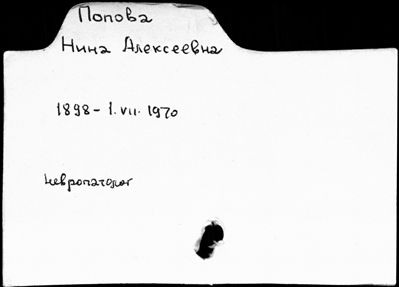 Попова
Нина Алексеевна
1898 - 1.VII.1970
невропатолог